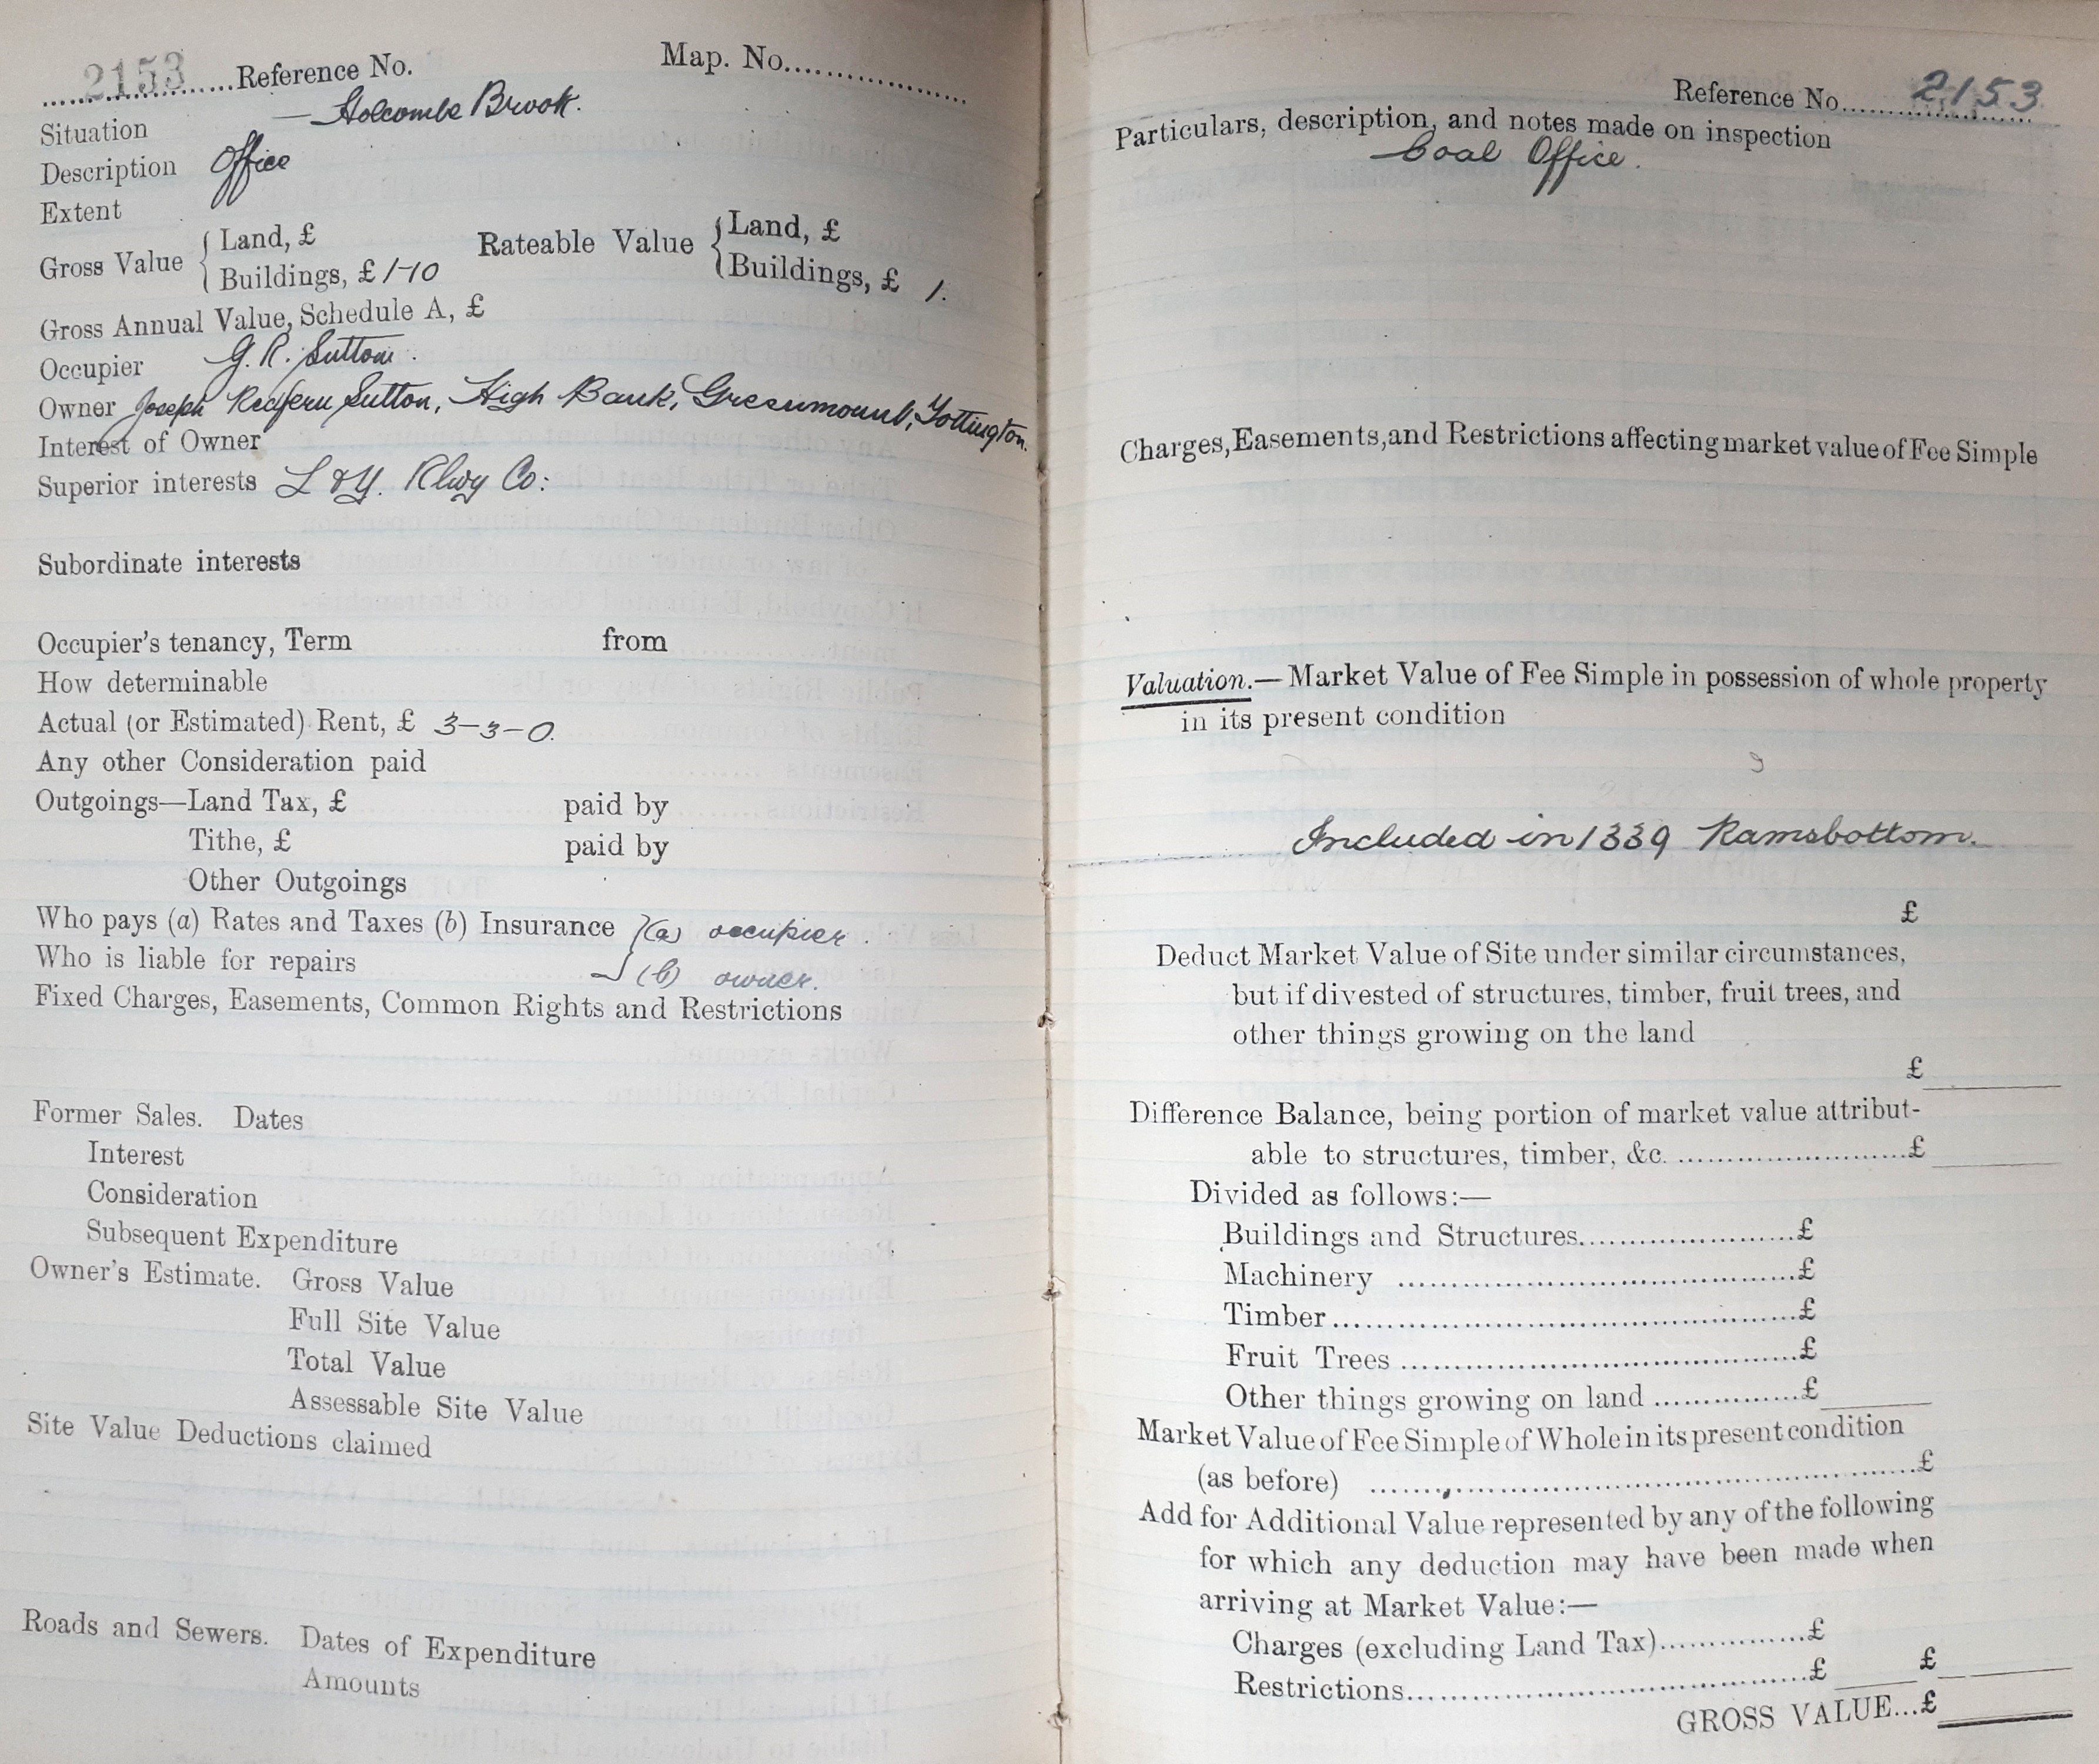 2153 Reference No. Map. No.
Situation — Holcombe Brook.
Description Office
Extent
Gross Value { Land, £ Rateable Value { Land, £
Buildings, £ 1-10 Buildings, £ 1.
Gross Annual Value, Schedule A, £
Occupier G. R. Sutton.
Owner Joseph Redfern Sutton, High Bank, Greenmount, Tottington.
Interest of Owner
Superior interests L & Y. Rlwy Co:
Subordinate interests
Occupier's tenancy, Term from
How determinable
Actual (or Estimated) Rent, £ 3-3-0.
Any other Consideration paid
Outgoings—Land Tax, £ paid by
Tithe, £ paid by
Other Outgoings
Who pays (a) Rates and Taxes (b) Insurance } (a) occupier.
Who is liable for repairs (b) owner.
Fixed Charges, Easements, Common Rights and Restrictions
Former Sales. Dates
Interest
Consideration
Subsequent Expenditure
Owner's Estimate. Gross Value
Full Site Value
Total Value
Assessable Site Value
Site Value Deductions claimed
Roads and Sewers. Dates of Expenditure
Amounts
Reference No. 2153
Particulars, description, and notes made on inspection
Coal Office.
Charges, Easements, and Restrictions affecting market value of Fee Simple
Valuation.—Market Value of Fee Simple in possession of whole property
in its present condition
Included in 1339 Ramsbottom.
£
Deduct Market Value of Site under similar circumstances,
but if divested of structures, timber, fruit trees, and
other things growing on the land
£
Difference Balance, being portion of market value attribut-
able to structures, timber, &c. ........................£
Divided as follows:—
Buildings and Structures........................£
Machinery ........................£
Timber........................£
Fruit Trees ........................£
Other things growing on land ...............£
Market Value of Fee Simple of Whole in its present condition
(as before) ........................£
Add for Additional Value represented by any of the following
for which any deduction may have been made when
arriving at Market Value:—
Charges (excluding Land Tax)...............£
Restrictions........................£ £
GROSS VALUE...£